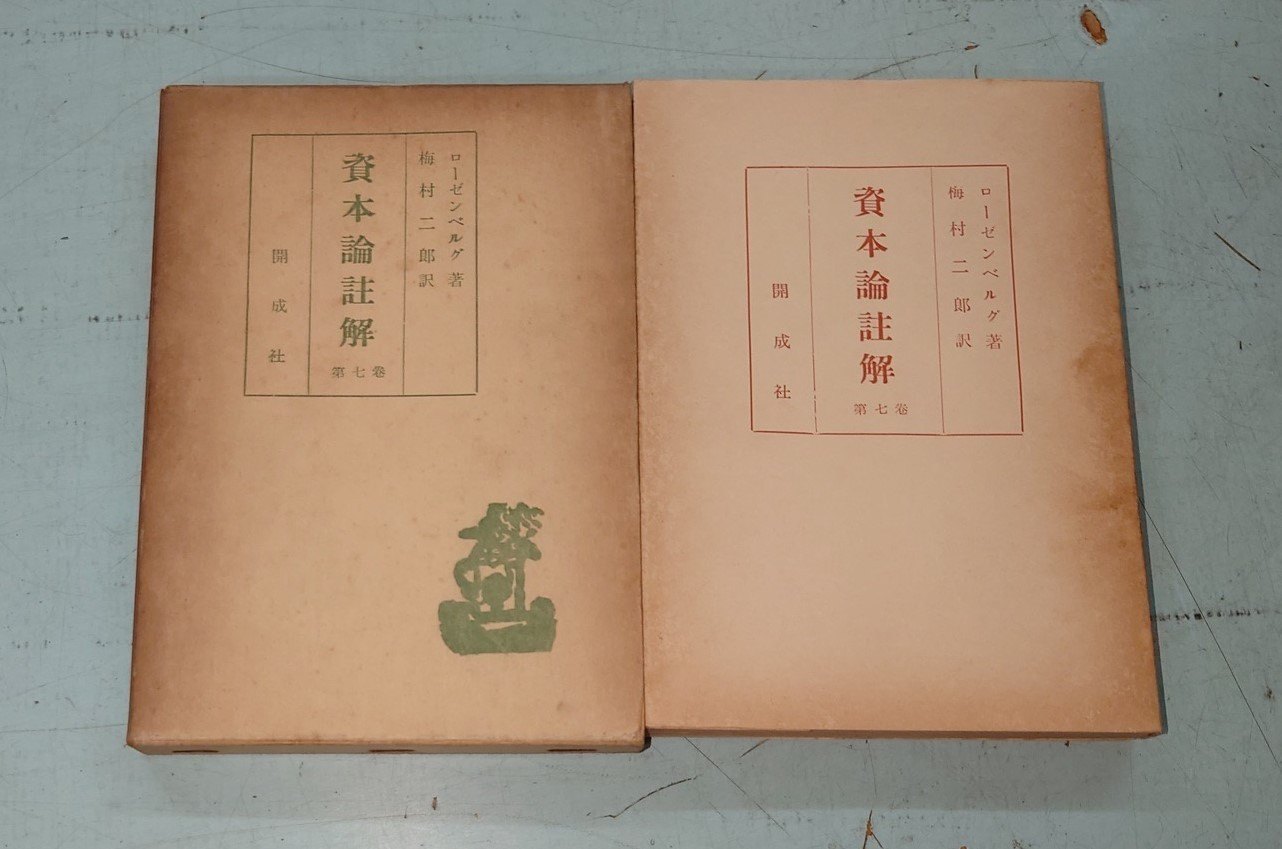 ローゼンベルグ著
梅村二郎訳
資本論註解
第七巻
開成社
ローゼンベルグ著
梅村二郎訳
資本論註解
第七巻
開成社